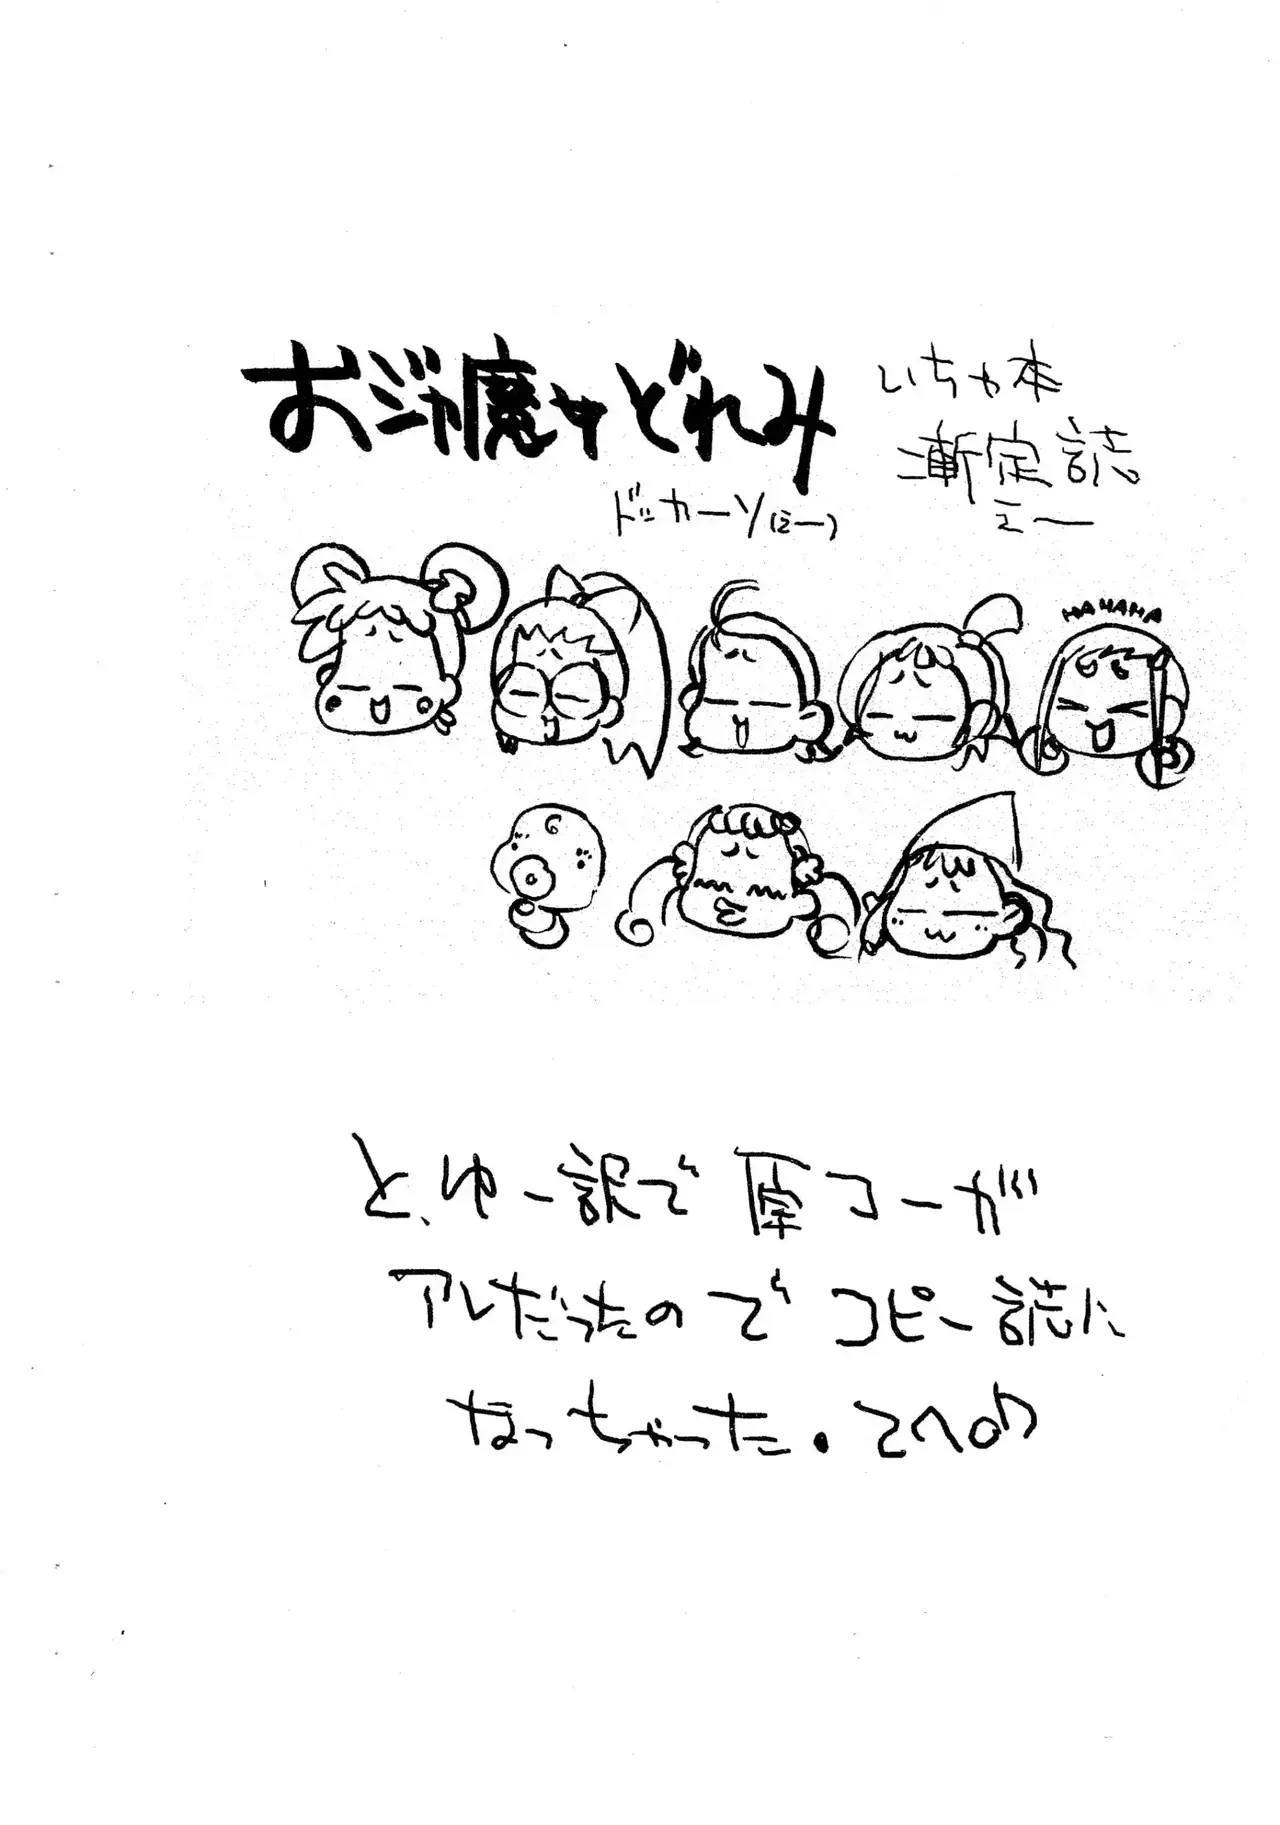 おジャ魔女どれみ
ドッカ～ソ(えー)
いちゃ本
漸定誌
えー
HAHAHA
と、ゆー訳で原コーが
アレだったのでコピー誌に
なっちゃった。てへ♪